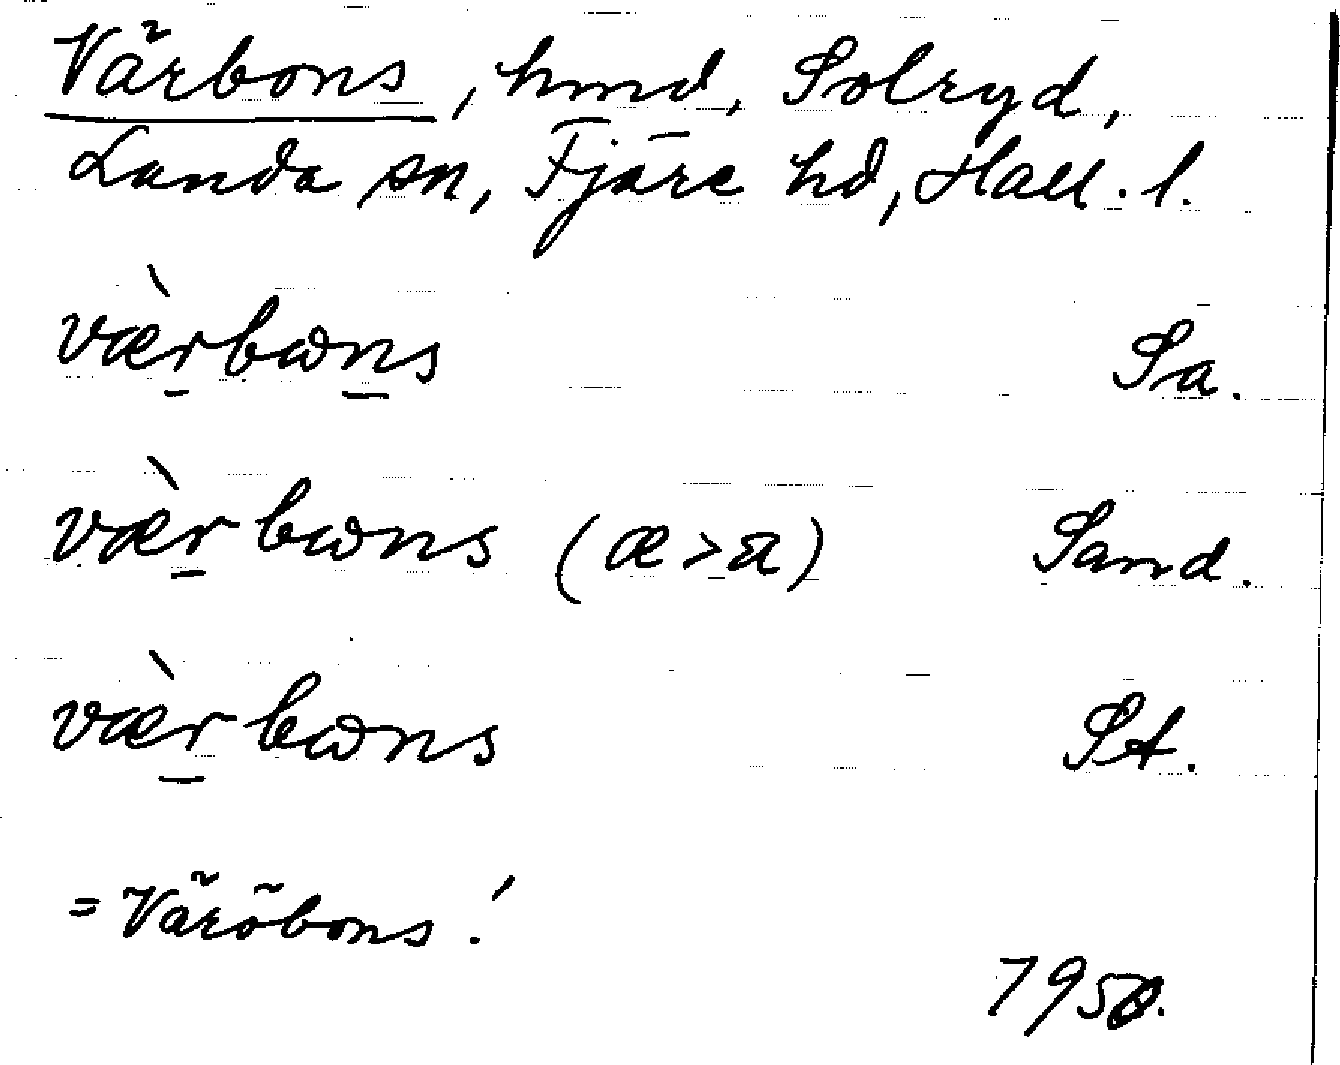 Värbons, hmd, Solryd,
Landa sn, Fjäre hd, Hall. l.
væ̀r̲bωn̲s Sa.
væ̀r̲bωns (æ>a) Sand.
væ̀r̲bωns St.
= Väröbons!
1950.